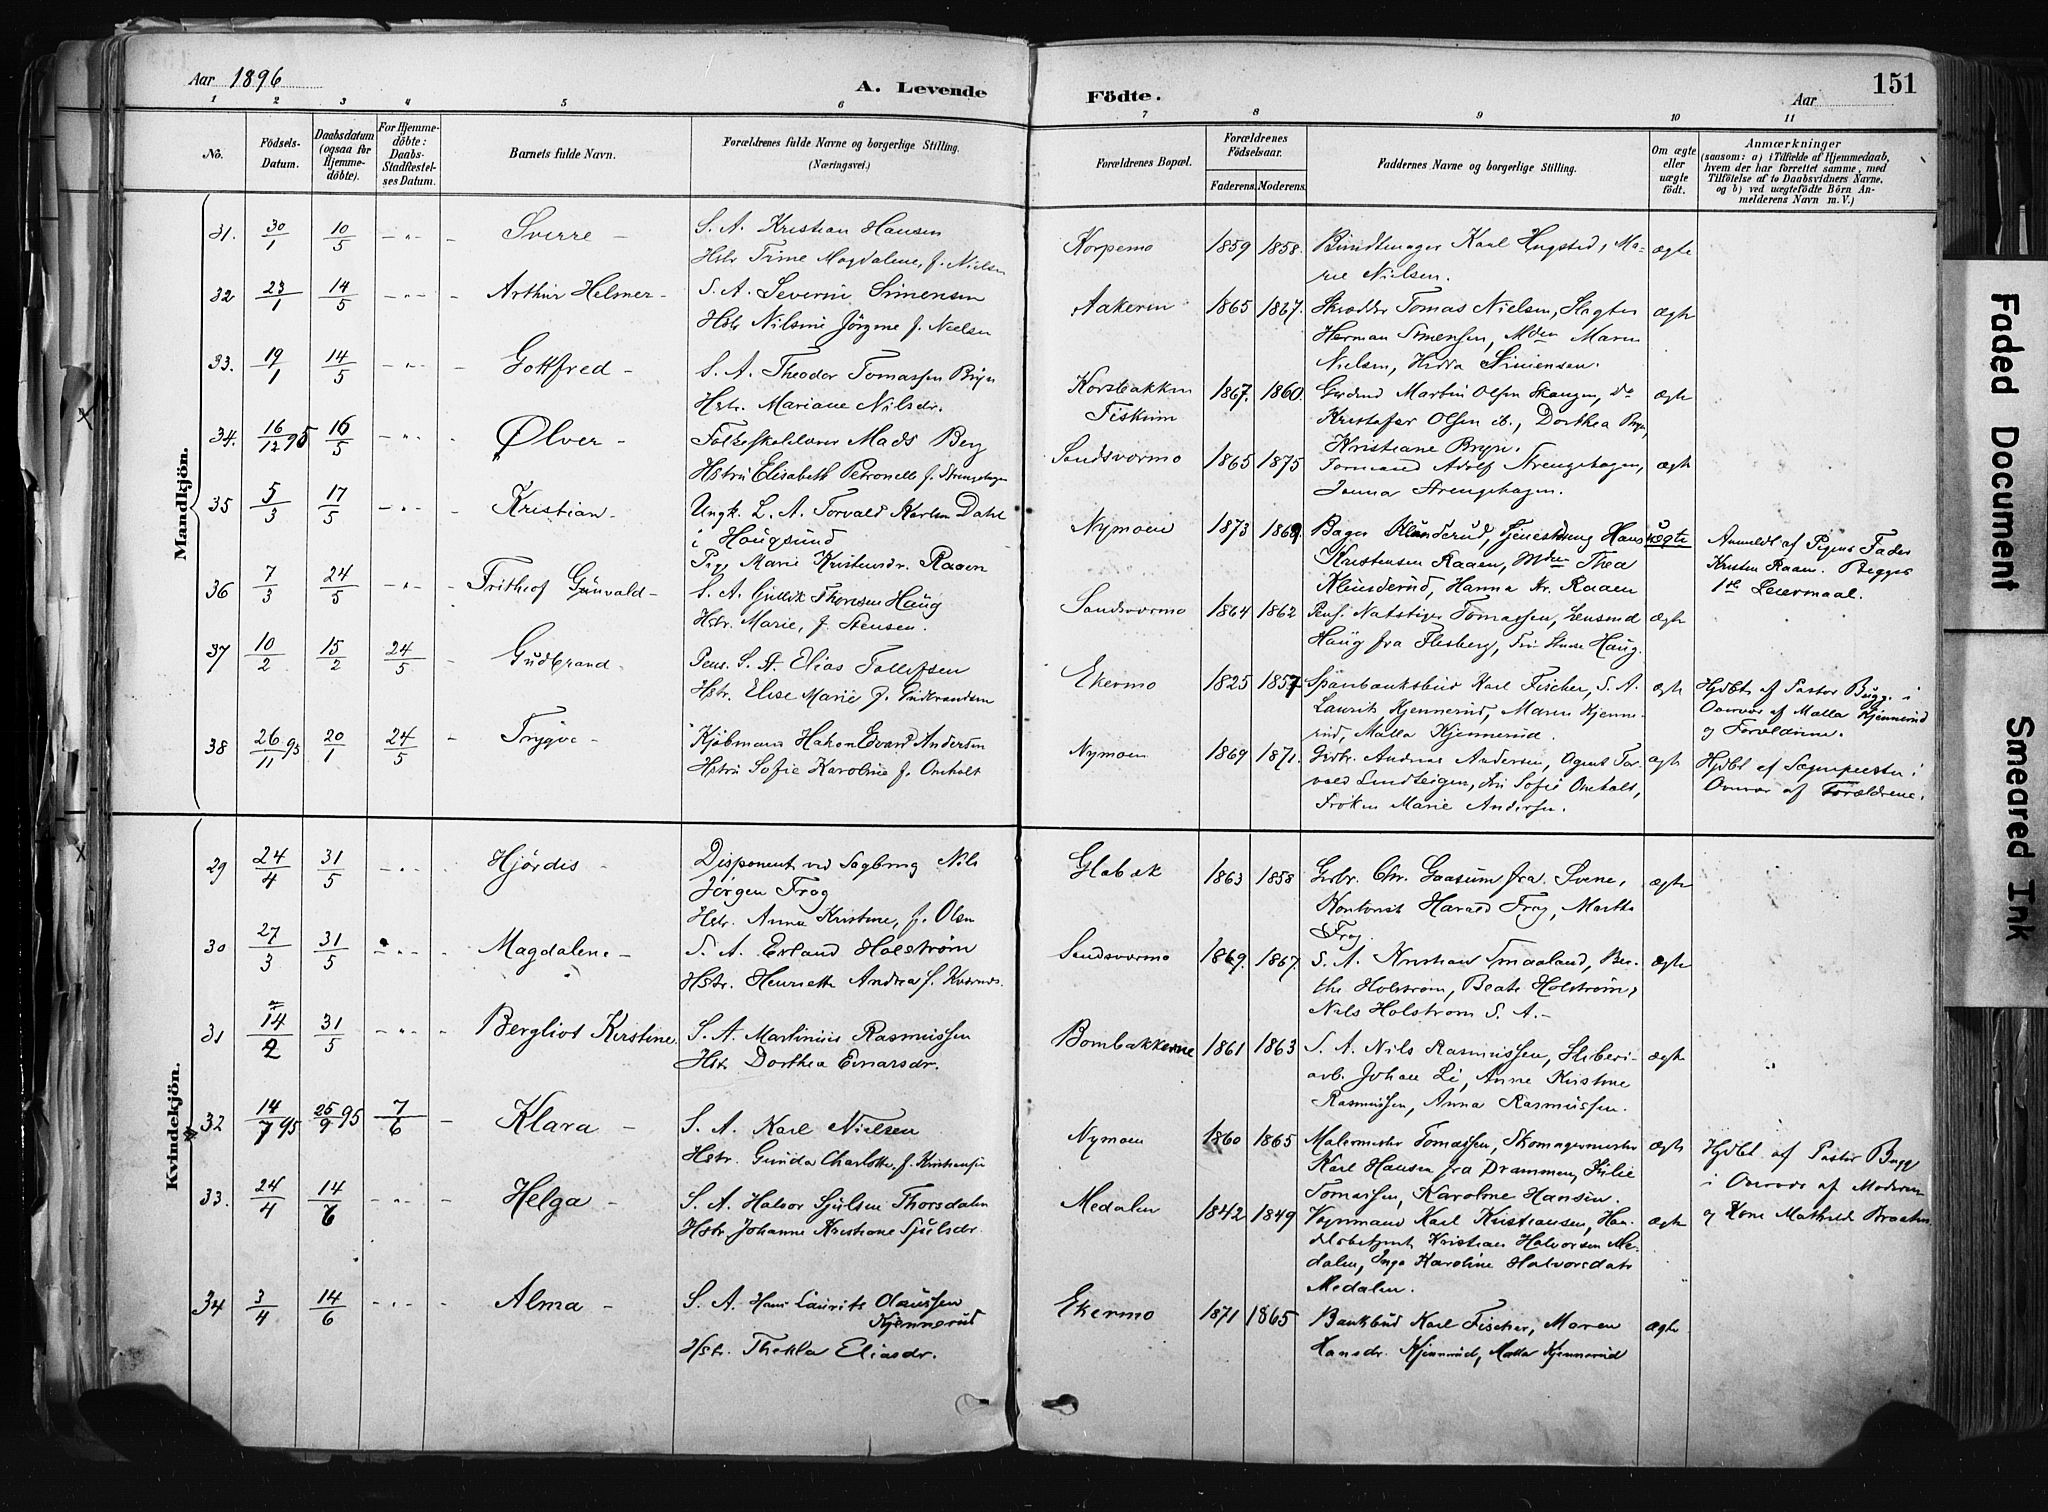 Aar 1896
A. Levende
Födte.
Aar
151
1 2 3 4 5 6 7 8 9 10 11
No.
Födsels-
Datum.
Daabsdatum
(ogsaa for
Hjemme-
döbte).
For Hjemme-
döbte:
Daabs-
Stadfæstel-
ses Datum.
Barnets fulde Navn.
Forældrenes fulde Navne og borgerlige Stilling.
(Næringsvei.)
Forældrenes Bopæl.
Forældrenes
Födselsaar.
Faderens. Moderens.
Faddernes Navne og borgerlige Stilling.
Om ægte
eller
uægte
födt.
Anmærkninger
(saasom: a) i Tilfælde af Hjemmedaab,
hvem der har forrettet samme, med
Tilföielse af to Daabsvidners Navne,
og b) ved uægtefödte Börn An-
melderens Navn m. V.)
Mandkjön.
31. 30/1 10/5 Sverre S. A. Kristian Hansen
Hstr Trine Magdalene, f. Nielsen
Korpemo 1859 1858. Karl Hugsted, Ma-
rie Nielsen.
ægte
32 23/1 14/5 Arthur Helmer S. A. Severin Simensen
Hstr Nilsine Jörgine f. Nielsen
Aakeren 1865 1867. Skrædder Tomas Nielsen, Slagter
Herman Simensen, Mdm Maren
Nielsen, Hilda Simensen.
ægte
33. 19/1 14/5 Gottfred S. A. Theodor Tomassen Bryn
Hstr. Mariane Nilsdr.
Korsbakken
Fiskum
1867. 1860. Grdmd Martin Olsen Skangen, do
Kristofer Olsen ib., Dorthea Bryn,
Kristiane Bryn.
ægte
34. 16/12 95 16/5 Ølver Folkeskolelærer Mads Berg
Hstru Elisabeth Petronelle f. Strengehagen
Sandsværmo 1865 1875 Formand Adolf Strengehagen,
Janna Strengehagen.
ægte
35 5/3 17/5 Kristian Ungk. L. A. Torvald Karlsen Dahl
i Haugsund
Pige Marie Kristensdr. Raaen
Nymoen 1873 1869 Bager Klunderud, Tjenestdreng Hans
Kristensen Raaen, Mdm Thea
Klunderud, Hanna Kr. Raaen
uægte
Anmeldt af Pigens Fader
Kristen Raaen. Begges
1ste Leiermaal.
36 7/3 24/5 Frithiof Gunvald S. A. Gullik Thorsen Haug
Hstr. Marie, f. Stensen.
Sandsværmo 1864 1862 Pens. Natstiger Tomassen, Lensmd
Haug fra Flesberg, Fru Haug.
ægte
37 10/2 15/2 24/5 Gudbrand Pens. S. A. Elias Tollefsen
Hstr. Elise Marie f. Gudbrandsen
Ekermo 1825 1857 Sparebanksbud Karl Fischer, S. A.
Laurits Kjennerud, Maren Kjenne-
rud, Malla Kjennerud.
ægte
Hjdbt af Pastor Bugge i
Overvær af Malla Kjennerud
og Forældrene.
38 26/11 95 20/1 24/5 Trygve Kjöbmand Hakon Edvard Andersen
Hstru Sofie Karoline f. Omholt
Nymoen 1869 1871. Grdbr. Andreas Andersen, Agent Tor-
vald Lundteigen, Fru Sofie Omholt,
Fröken Marie Andersen.
ægte
Hjdbt af Sognepresten i
Overvær af Forældrene.
Kvindekjön.
29 24/4 31/5 Hjördis Disponent ved Sagbrug Nils
Jörgen Frog
Hstr. Anna Kristine, f. Olsen
Glabæk 1863 1858 Grdbr. Chr. Gaasum fra Svene,
Kontorist Harald Frog, Martha
Frog.
ægte
30 27/3 31/5 Magdalene S. A. Erland Holström
Hstr. Henriette Andrea f. Kværnes.
Sandsværmo 1869. 1867. S. A. Kristian Smaaland, Ber-
the Holström, Beate Holström,
Nils Holström S. A.
ægte
31 14/2 31/5 Bergliot Kirstine S. A. Martinius Rasmussen
Hstr Dorthea Einarsdr.
Bombakkerne 1861 1863 S. A. Nils Rasmussen, Sliberi-
arb. Johan Li, Anne Kristine
Rasmussen, Anna Rasmussen.
ægte
32 14/7 95 25/9 95 7/6 Klara S. A. Karl Nielsen
Hstr. Gunda Charlotte, f. Kristiansen
Nymoen 1860 1865 Malermester Tomassen, Skomagermester
Karl Hansen fra Drammen, Julie
Tomassen, Karoline Hansen.
ægte
Hjdbt af Pastor Bugge
i Overvær af Moderen
og Kone Mathilde Braaten
33. 24/4 14/6 Helga S. A. Halvor Sjulsen Thorsdalen
Hstr. Johanne Kristiane Sjulsdr.
Medalen 1842 1849 Vognmand Karl Kristiansen, Han-
delsbetjent Kristian Halvorsen Me-
dalen, Inga Karoline Halvorsdatr
Medalen.
ægte
34 3/4 14/6 Alma S. A. Hans Laurits Olaussen
Kjennerud
Hstr. Thekla Eliasdr.
Ekermo 1871 1865 Bankbud Karl Fischer, Maren
Hansdr. Kjennerud, Malla Kjennerud
ægte
Faded Document
Smeared Ink